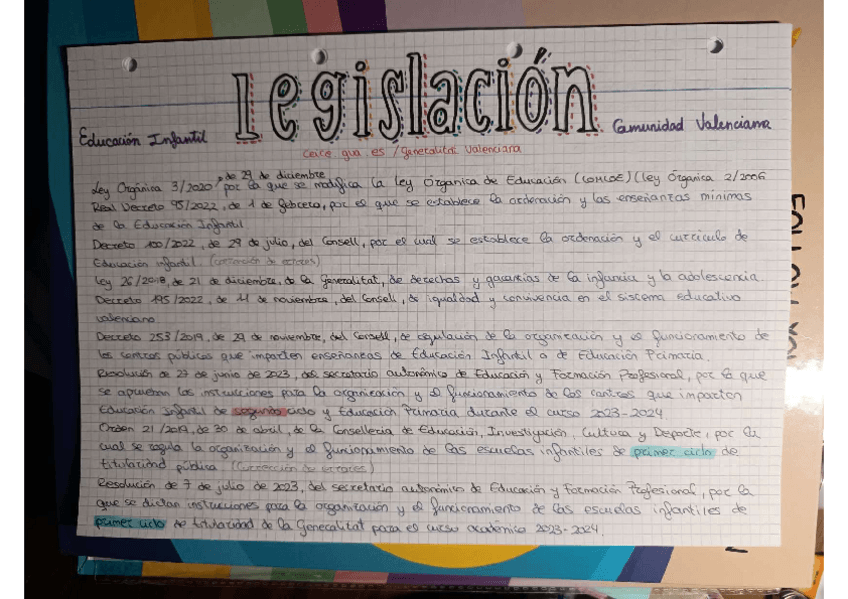 Legislación
Educación Infantil
Comunidad Valenciana
ceice gva es / Generalitat Valenciana
Ley Orgánica 3/2020, de 29 de diciembre por la que se modifica la Ley Órganica de Educación (LOMLOE) (Ley Órganica 2/2006
Real Decreto 95/2022, de 1 de febrero, por el que se establece la ordenación y las enseñanzas mínimas
de la Educación Infantil
Decreto 100/2022, de 29 de julio, del Consell, por el cual se establece la ordenación y el currículo de
Educación infantil (corrección de errores)
Ley 26/2018, de 21 de diciembre, de la Generalitat, de derechos y garantías de la infancia y la adolescencia
Decreto 195/2022, de 11 de noviembre, del Consell, de igualdad y convivencia en el sistema educativo
valenciano
Decreto 253/2019, de 29 de noviembre, del Consell, de regulación de la organización y el funcionamiento de
los centros públicos que imparten enseñanzas de Educación Infantil o de Educación Primaria.
Resolución de 27 de junio de 2023, del secretario autonómico de Educación y Formación Profesional, por la que
se aprueban las instrucciones para la organización y el funcionamiento de los centros que imparten
Educación Infantil de segundo ciclo y Educación Primaria durante el curso 2023-2024
Orden 21/2019, de 30 de abril, de la Conselleria de Educación, Investigación, Cultura y Deporte, por la
cual se regula la organización y el funcionamiento de las escuelas infantiles de primer ciclo de
titularidad pública (Corrección de errores)
Resolución de 7 de julio de 2023, del secretario autonómico de Educación y Formación Profesional, por la
que se dictan instrucciones para la organización y el funcionamiento de las escuelas infantiles de
primer ciclo de titularidad de la Generalitat para el curso académico 2023-2024.